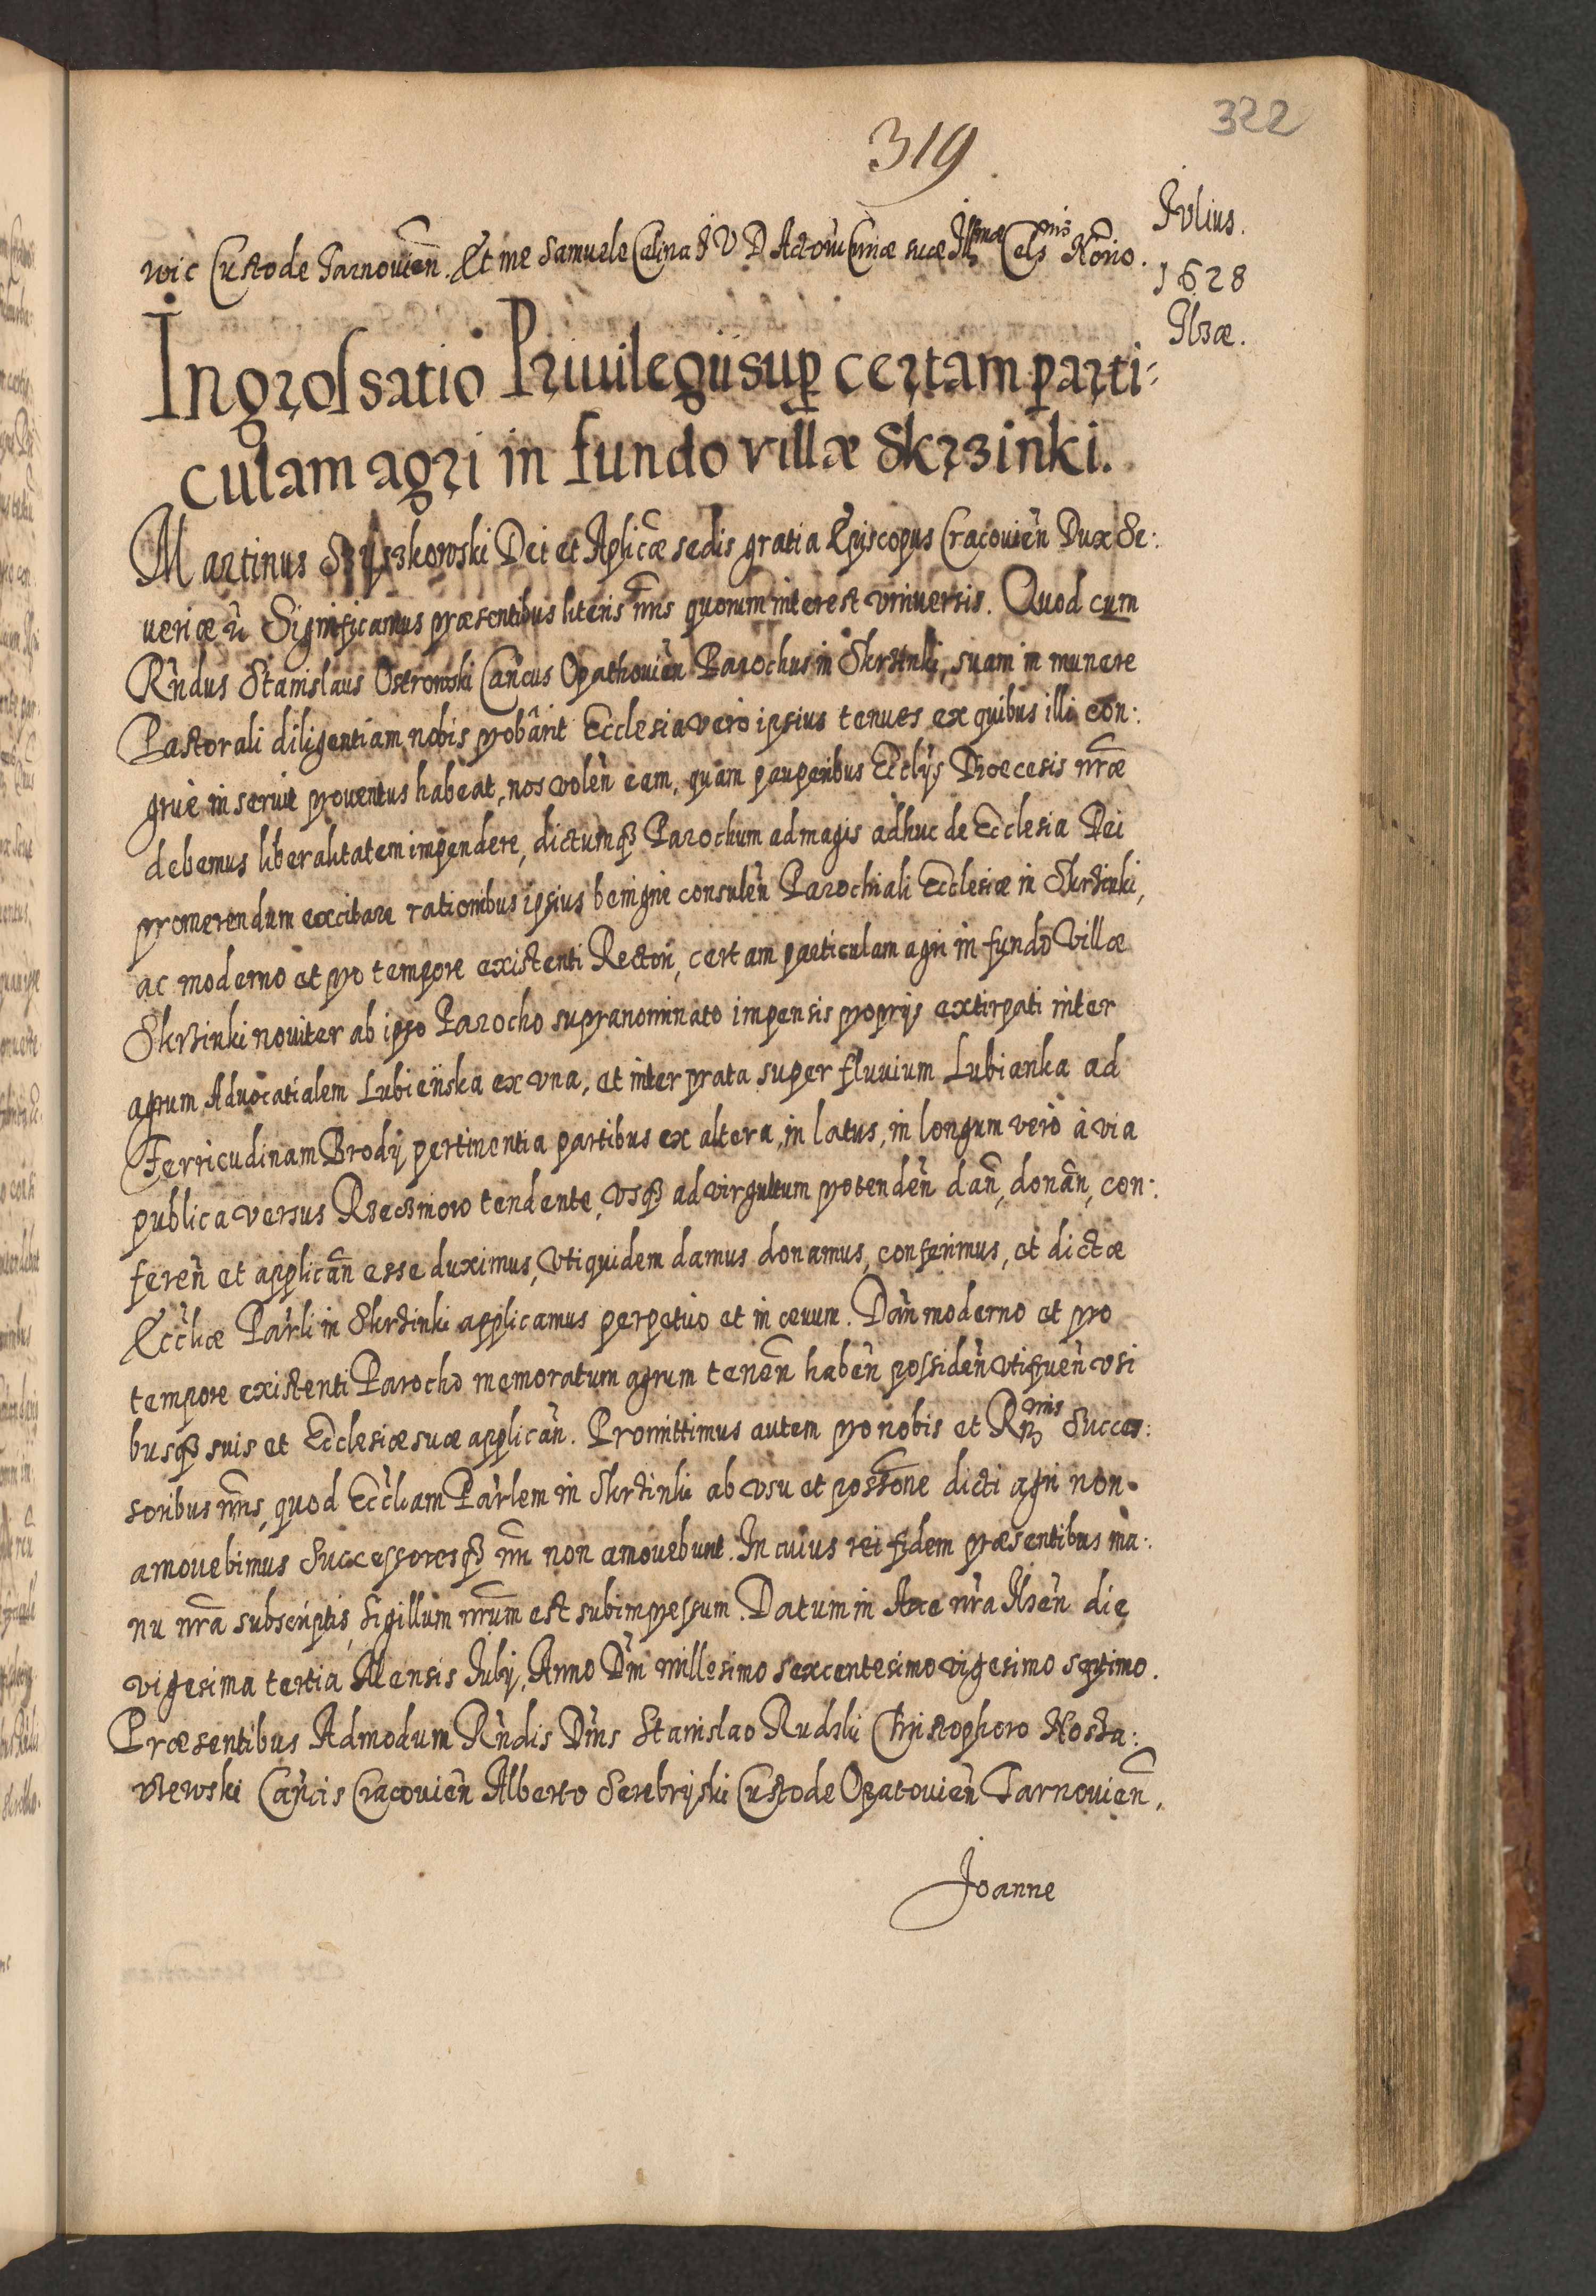 322
319
Julius.
1628
Ilzæ.
wic Custode Tarnovien. Et me Samuele Calina J V D Actorũ Cũriæ suæ Illmæ Celsnis Nõrio.
Ingrossatio Privilegii sup certam parti-
culam agri in fundo villæ Skrzinki.
Martinus Szyszkowski Dei et Aplicæ sedis gratia Episcopus Cracovien Dux Se:
veriæ Significamus præsentibus literis nris quorum interest universis. Quod cum
Rndus Stanislaus Ostrowski Cancus Opathovien Parochus in Skrzinki, suam in munere
Pastorali diligentiam nobis probârit Ecclesia vero ipsius tenues ex quibus illi con:
gruè inserviat proventus habeat, nos volen eam, quam pauperibus Ecclijs Dioecesis nræ
debemus liberalitatem impendere, dictumq Parochum ad magis adhuc de Ecclesia Dei
promerendum excitare rationibus ipsius benigne consulen Parochiali Ecclesiæ in Skrzinki,
ac moderno et pro tempore existenti Rectori, certam particulam agri in fundo Villæ
Skrzinki noviter ab ipso Parocho supranominato impensis proprijs extirpati inter
agrum Advocatialem Lubieńska ex una, et inter prata super fluvium Lubianka ad
Ferricudinam Brody pertinentia partibus ex altera, in latus, in longum verò à via
publica versus Rzeczniow tendente, usq ad virgultum protenden dan, donan, con:
feren et applican esse duximus, Uti quidem damus donamus, conferimus, et dictæ
Eccliæ Parli in Skrzinki applicamus perpetuo et in ævum. Dan moderno et pro
tempore existenti Parocho memoratum agrum tenen haben possiden utifruen usi
busq suis et Ecclesiæ suæ applican. Promittimus autem pro nobis et Rmis Succes:
soribus nris, quod Eccliam Parlem in Skrzinki ab usu et possone dicti agri non
amovebimus Successoresq nri non amovebunt. In cuius rei fidem præsentibus ma:
nu nra subscriptis, Sigillum nrum est subimpressum. Datum in Arce nra Ilzen die
vigesima tertia Mensis Julij, Anno Dni millesimo sexcentesimo vigesimo septimo.
Præsentibus Admodum Rndis Dnis Stanislao Rudzki Christophoro Kosta:
rzewski Cancis Cracovien Alberto Serebryski Custode Opatovien Tarnovien,
Joanne